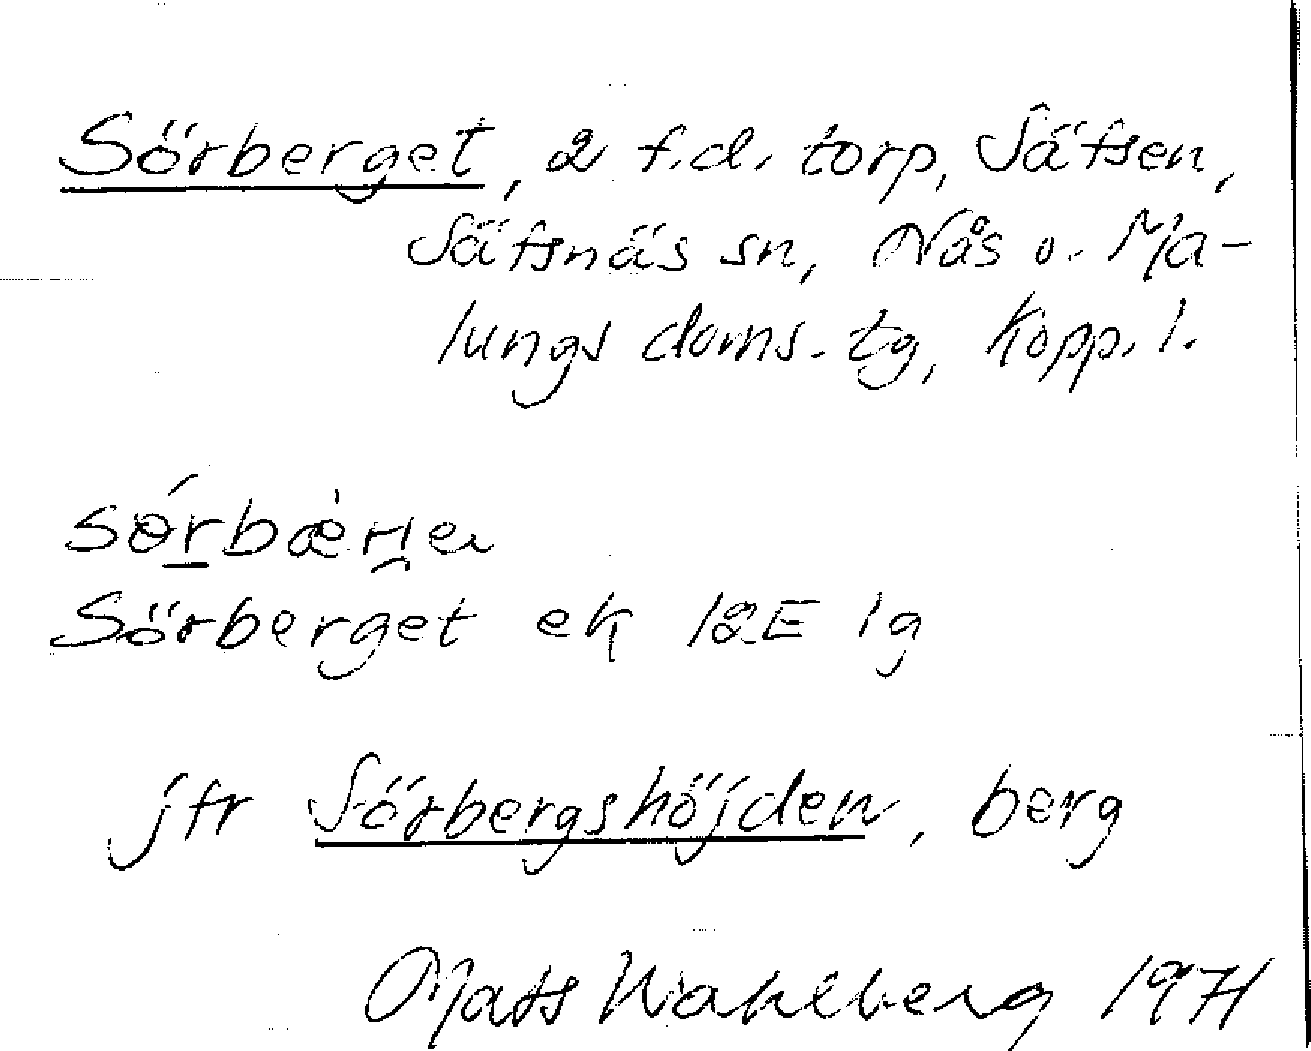 Sörberget, 2 f.d. torp, Säfsen,
Säfsnäs sn, Nås o. Ma-
lungs doms. tg, Kopp. l.
Sörberget ek 12E 1g
jfr Sörbergshöjden, berg
Mats Wahlberg 1971